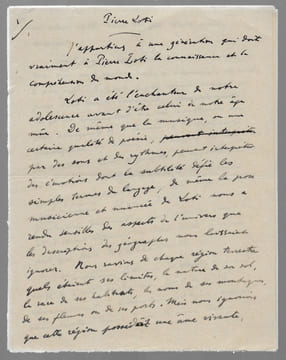 Pierre Loti
J'appartiens à une génération qui doit
vraiment à Pierre Loti la connaissance et la
compréhension du monde.
Loti a été l'enchanteur de notre
adolescence avant d'être celui de notre âge
mûr. De même que la musique, ou une
certaine qualité de poésie, peuvent interpréter
par des sons et des rythmes, peuvent interpréter
des émotions dont la subtilité défie les
simples termes du langage, de même la prose
musicienne et nuancée de Loti nous a
rendu sensibles des aspects de l'univers que
les descriptions des géographes nous laissaient
ignorer. Nous savions de chaque région terrestre
quels étaient ses limites, la nature de son sol,
la race de ses habitants, les noms de ses montagnes,
de ses fleuves ou de ses ports. Mais nous ignorions
que cette région possédât une âme vivante,